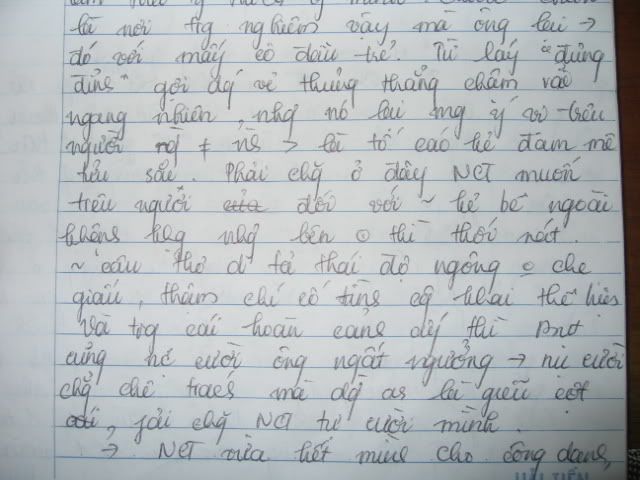 là nơi trg nghiêm vậy mà ông lại →
đó với mấy cô đầu trẻ. Từ láy "đủng
đỉnh" gợi dg vẻ thủng thẳng chậm rãi
ngang nhiên, nhg nó lại mg ý vị trêu
người → là tố cáo kẻ đam mê
tửu sắc. Phải chg ở đây NCT muốn
trêu người đối với ~ kẻ bề ngoài
không nhg bên thì thối nát.
~ câu thơ tả thái độ ngông che
giấu, thậm chí cố công khai thể hiện
Và trg cái hoàn cảnh ấy thì Bụt
cũng nc cười ông ngất ngưởng → nụ cười
chg chê trách mà là giễu cợt
, NCT tự cười mình.
→ NCT vừa hết mình cho công danh,
HẢI TIẾN